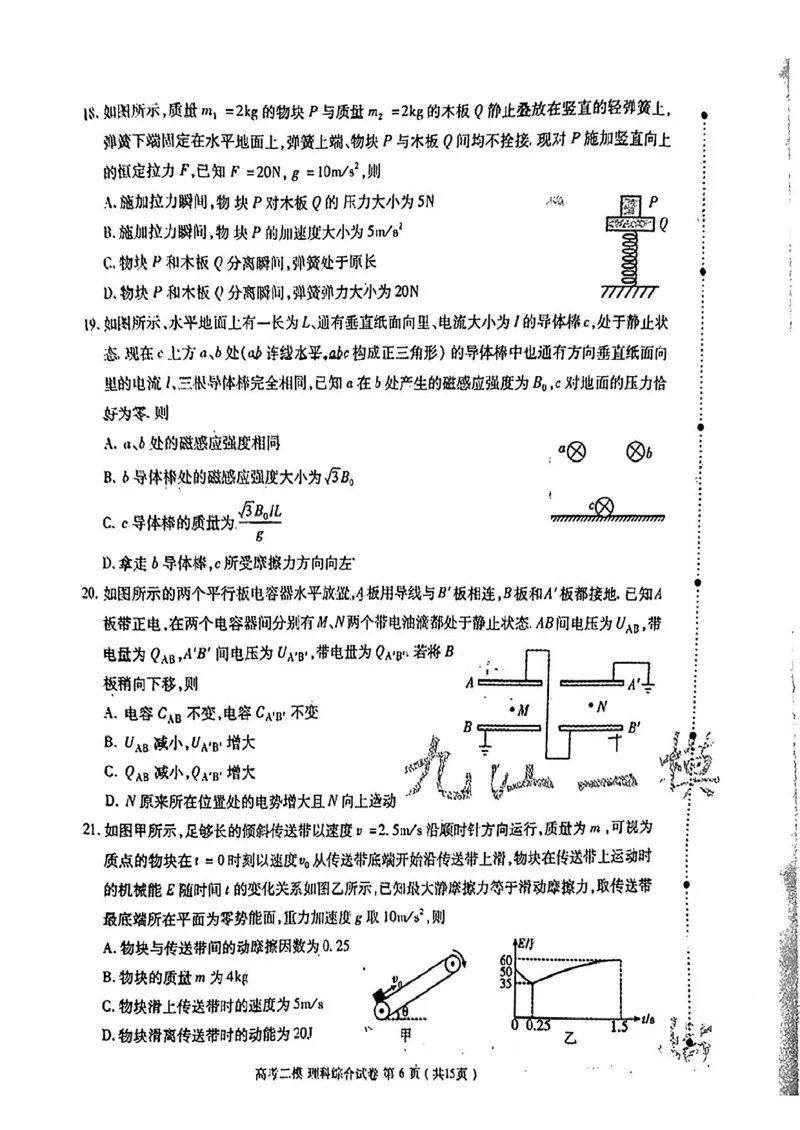 18. 如图所示,质量 m₁ =2kg 的物块 P 与质量 m₂ =2kg 的木板 Q 静止叠放在竖直的轻弹簧上,
弹簧下端固定在水平地面上,弹簧上端、物块 P 与木板 Q 间均不拴接. 现对 P 施加竖直向上
的恒定拉力 F,已知 F =20N, g =10m/s²,则
A. 施加拉力瞬间,物块 P 对木板 Q 的压力大小为 5N
B. 施加拉力瞬间,物块 P 的加速度大小为 5m/s²
C. 物块 P 和木板 Q 分离瞬间,弹簧处于原长
D. 物块 P 和木板 Q 分离瞬间,弹簧弹力大小为 20N
P
Q
19. 如图所示,水平地面上有一长为 L、通有垂直纸面向里、电流大小为 I 的导体棒 c,处于静止状
态. 现在 c 上方 a、b 处(ab 连线水平,abc 构成正三角形) 的导体棒中也通有方向垂直纸面向
里的电流 I,三根导体棒完全相同,已知 a 在 b 处产生的磁感应强度为 B₀,c 对地面的压力恰
好为零. 则
A. a、b 处的磁感应强度相同
B. b 导体棒处的磁感应强度大小为 √3B₀
C. c 导体棒的质量为 √3B₀IL/g
D. 拿走 b 导体棒,c 所受摩擦力方向向左
a
b
c
20. 如图所示的两个平行板电容器水平放置,A 板用导线与 B′ 板相连,B 板和 A′ 板都接地. 已知 A
板带正电,在两个电容器间分别有 M、N 两个带电油滴都处于静止状态. AB 间电压为 U_AB,带
电量为 Q_AB,A′B′ 间电压为 U_A′B′,带电量为 Q_A′B′. 若将 B
板稍向下移,则
A. 电容 C_AB 不变,电容 C_A′B′ 不变
B. U_AB 减小,U_A′B′ 增大
C. Q_AB 减小,Q_A′B′ 增大
D. N 原来所在位置处的电势增大且 N 向上运动
A
A′
M
N
B
B′
21. 如图甲所示,足够长的倾斜传送带以速度 v =2.5m/s 沿顺时针方向运行,质量为 m ,可视为
质点的物块在 t = 0 时刻以速度 v₀ 从传送带底端开始沿传送带上滑,物块在传送带上运动时
的机械能 E 随时间 t 的变化关系如图乙所示,已知最大静摩擦力等于滑动摩擦力,取传送带
最底端所在平面为零势能面,重力加速度 g 取 10m/s²,则
A. 物块与传送带间的动摩擦因数为 0.25
B. 物块的质量 m 为 4kg
C. 物块滑上传送带时的速度为 5m/s
D. 物块滑离传送带时的动能为 20J
v₀
θ
甲
E/J
60
50
35
0 0.25 1.5 t/s
乙
高考二模 理科综合试卷 第 6 页 ( 共15页 )